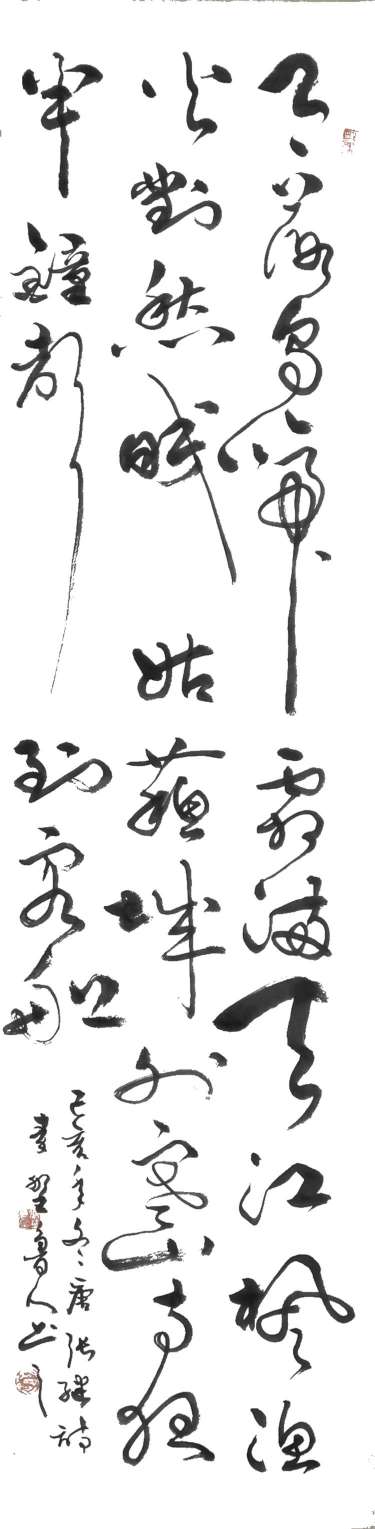 月落烏啼霜滿天江楓漁
火對愁眠姑蘇城外寒山寺夜
半鐘聲到客船
己亥年冬唐張繼詩
魯人书